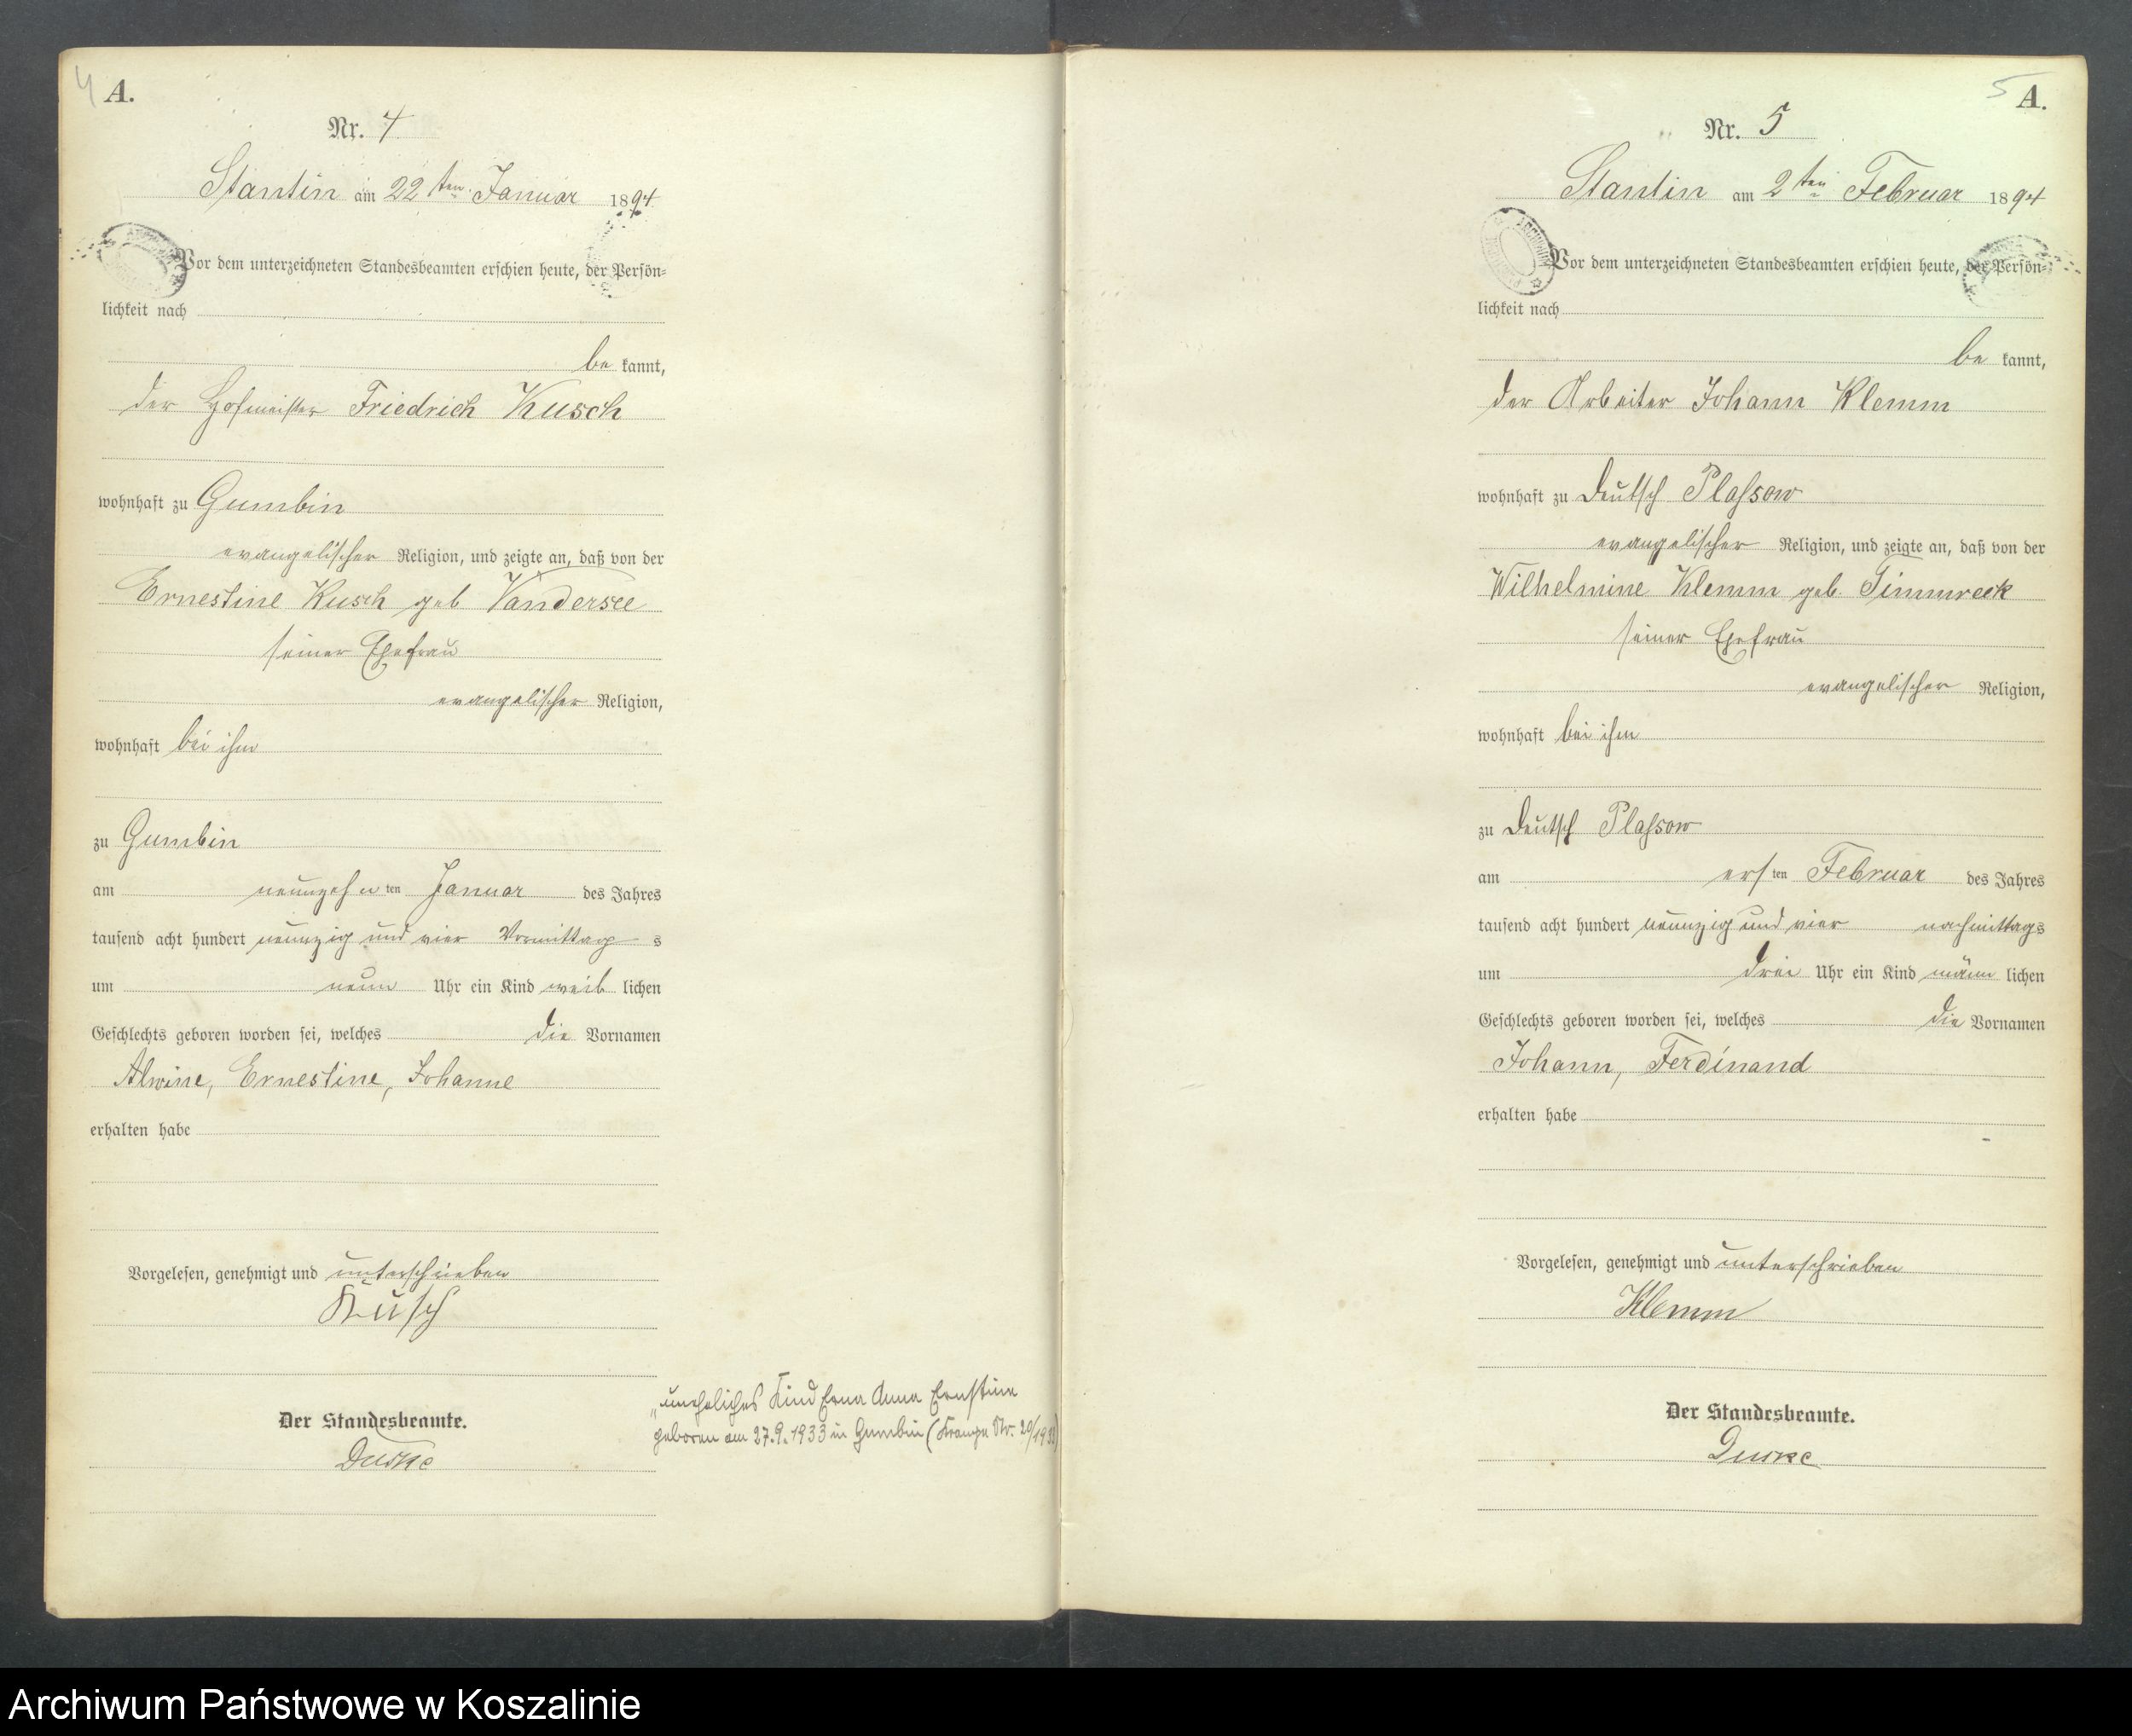 4
A.
Nr. 4
Stantin am 22ten Januar 1894
Vor dem unterzeichneten Standesbeamten erschien heute, der Persön=
lichkeit nach
be kannt,
der Hofmeister Friedrich Kusch
wohnhaft zu Gumbin
evangelischer Religion, und zeigte an, daß von der
Ernestine Kusch geb Vandersee
seiner Ehefrau
evangelischer Religion,
wohnhaft bei ihm
zu Gumbin
am neunzehn ten Januar des Jahres
tausend acht hundert neunzig und vier Vormittag s
um neun Uhr ein Kind weib lichen
Geschlechts geboren worden sei, welches die Vornamen
Alwine, Ernestine, Johanne
erhalten habe
Vorgelesen, genehmigt und unterschrieben
Kusch
Der Standesbeamte.
uneheliches Kind Erna Anna Ernstine
geboren am 27.9.1933 in Gumbin (Krampe Nr. 20/1933)
5
A.
Nr. 5
Stantin am 2ten Februar 1894
Vor dem unterzeichneten Standesbeamten erschien heute, der Persön=
lichkeit nach
be kannt,
der Arbeiter Johann Klemm
wohnhaft zu Deutsch Plassow
evangelischer Religion, und zeigte an, daß von der
Wilhelmine Klemm geb. Timmreck
seiner Ehefrau
evangelischer Religion,
wohnhaft bei ihm
zu Deutsch Plassow
am ers ten Februar des Jahres
tausend acht hundert neunzig und vier nachmittags
um drei Uhr ein Kind männ lichen
Geschlechts geboren worden sei, welches die Vornamen
Johann, Ferdinand
erhalten habe
Vorgelesen, genehmigt und unterschrieben
Klemm
Der Standesbeamte.
Archiwum Państwowe w Koszalinie